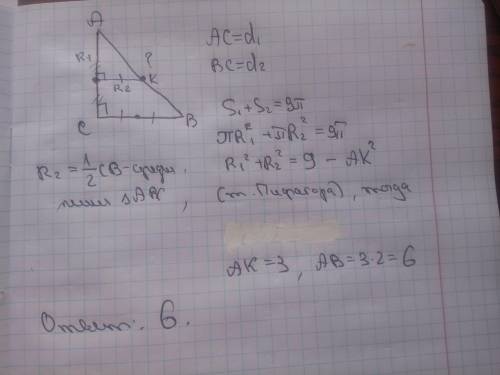 A
R₁
?
R₂
K
C
B
AC=d₁
BC=d₂
S₁+S₂=9π
πR₁²+πR₂²=9π
R₁²+R₂²=9 - AK²
R₂=1/2 CB-средн.
линия ΔABC, (т. Пифагора), тогда
AK=3, AB=3·2=6
Ответ: 6.